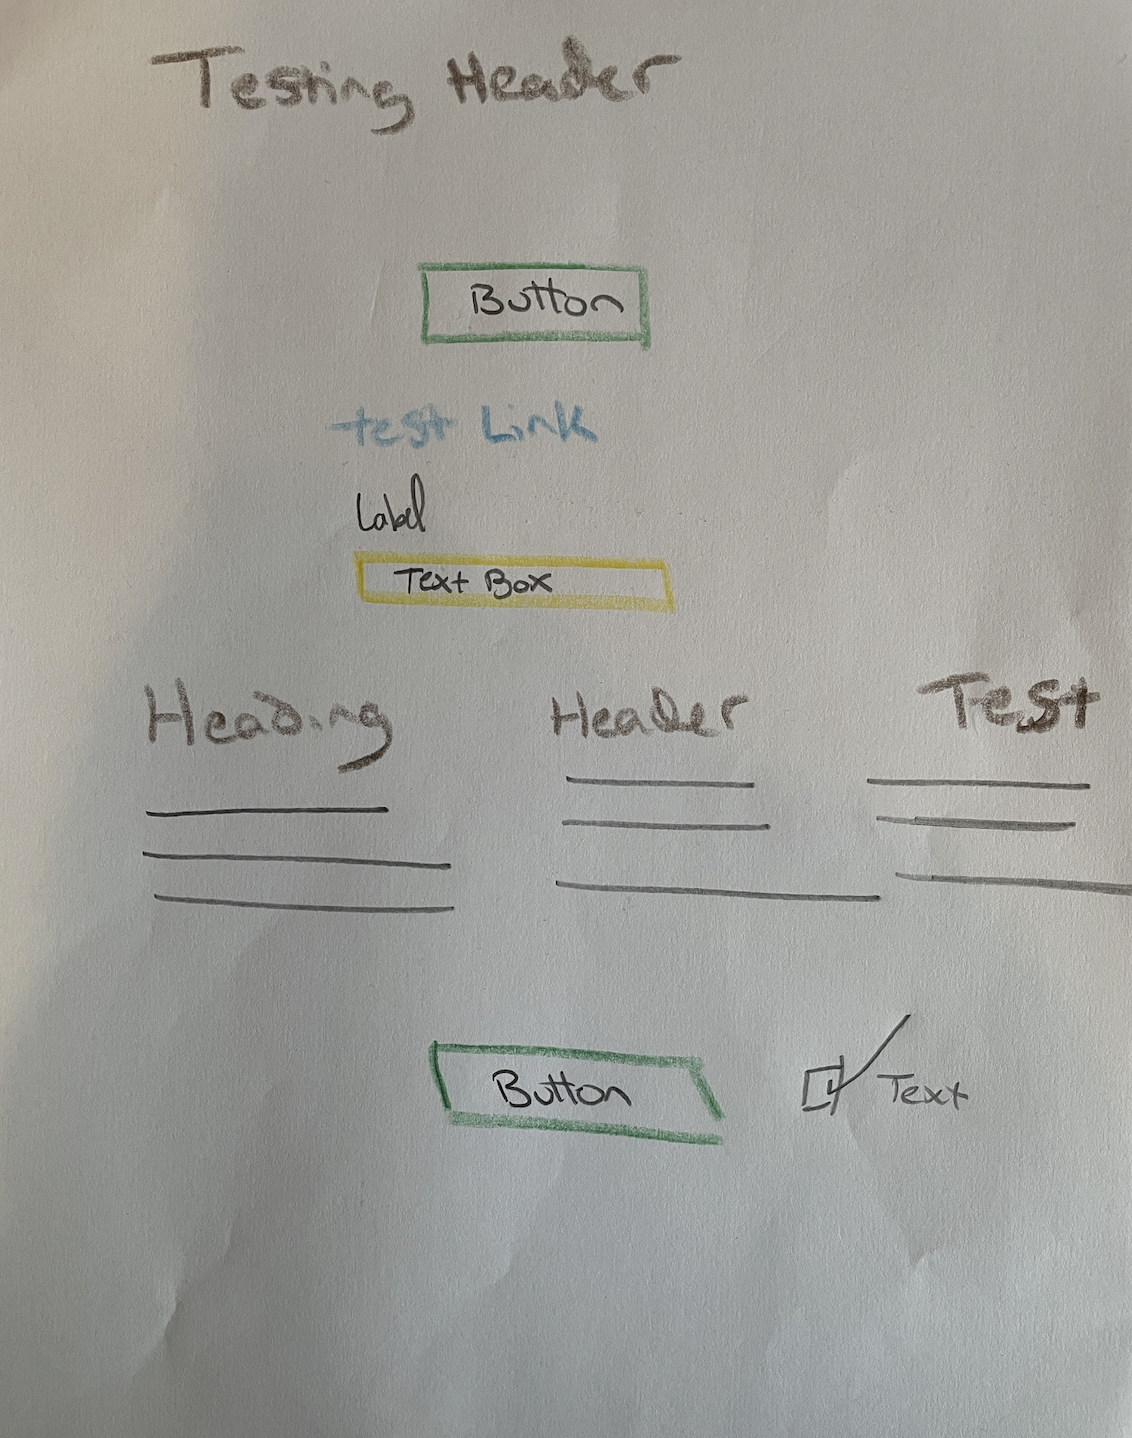 Testing Header
Button
test Link
Label
Text Box
Heading
Header
Test
Button
Text